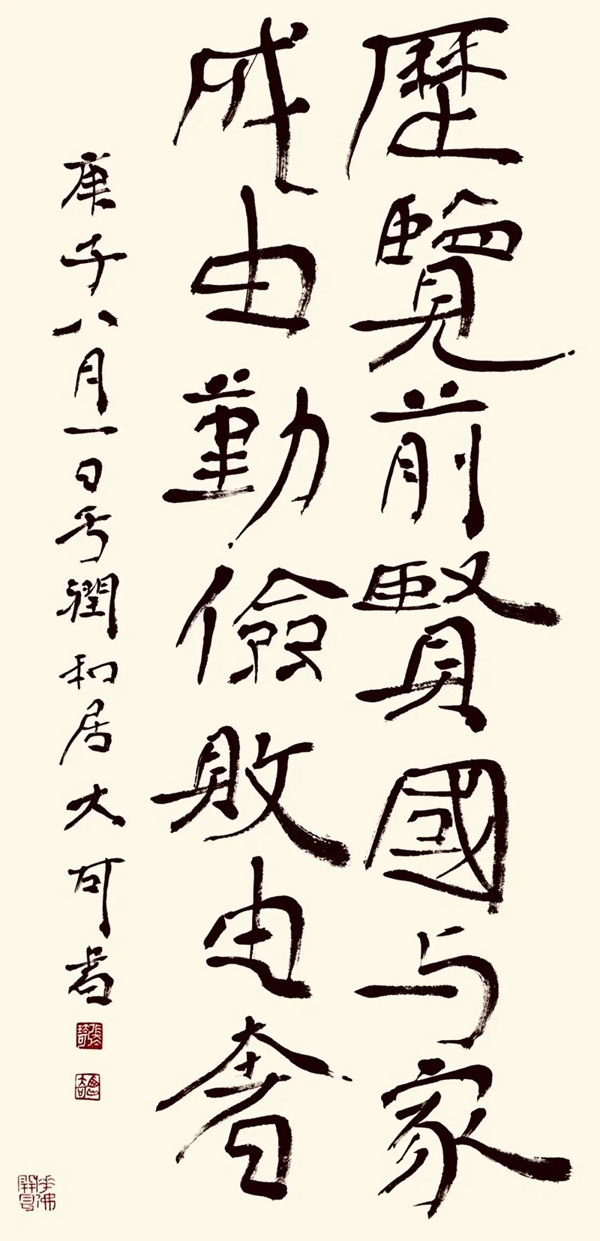 歷覽前賢國与家
成由勤儉敗由奢
庚子八月一日於潤和居大可書